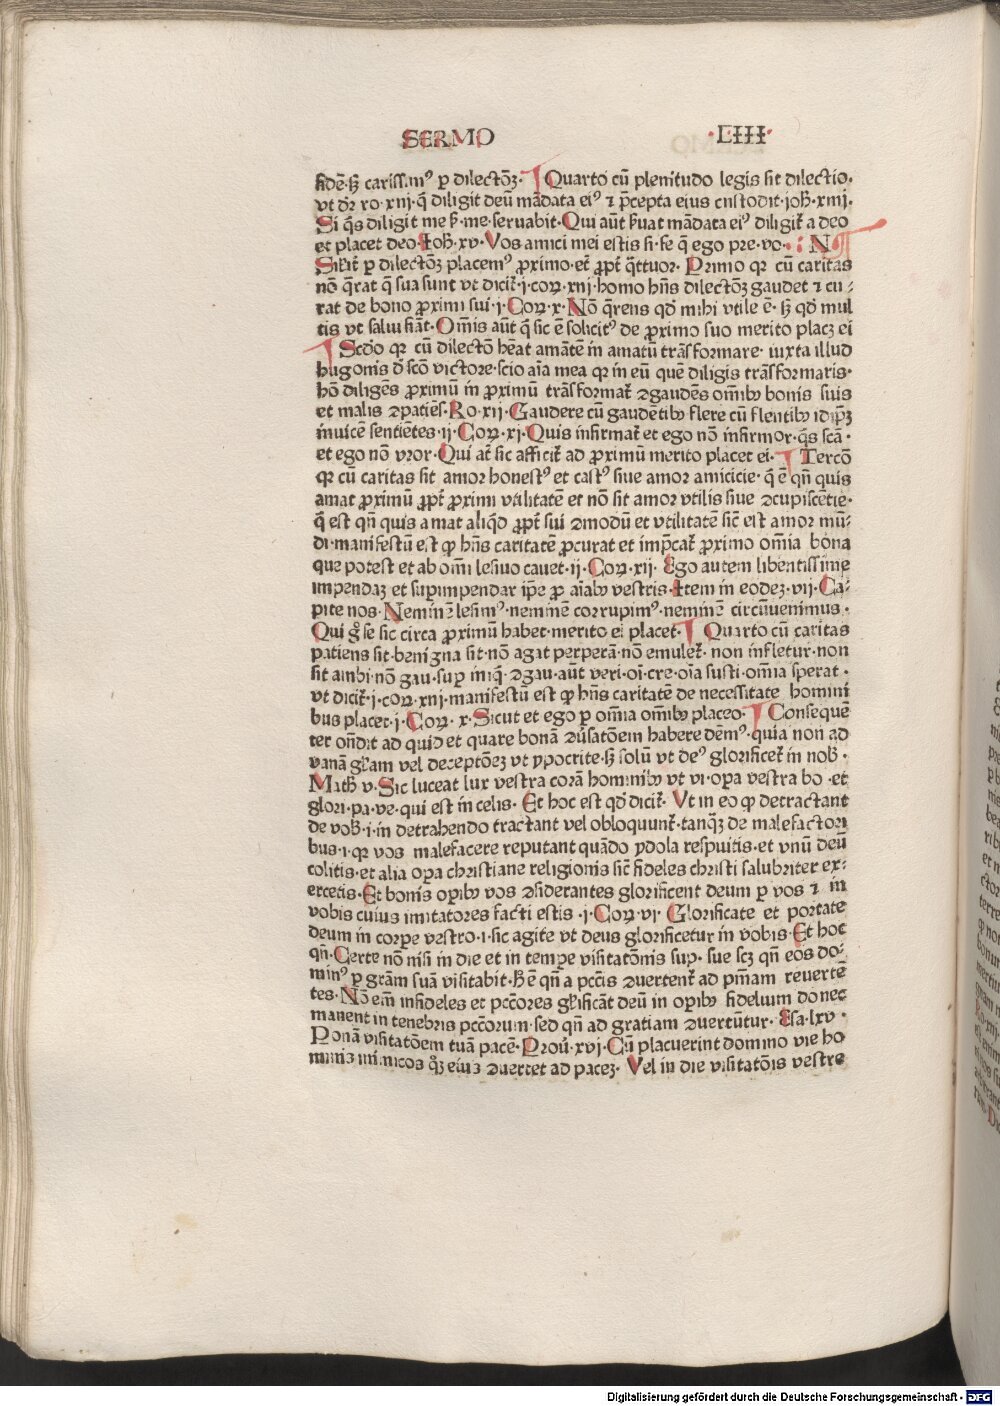 SERMO ·LIII·
fidē·sꝫ cariſſimꝰ ꝑ dilectōꝫ· Quarto cū plenitudo legis ſit dilectio·
vt dr̄ ro·xnj·q̄ diligit deū mādata eiꝰ ⁊ p̄cepta eius cuſtodit·joh̄·xmj·
Si q̄s diligit me ẜ·me·ſeruabit·Qui aūt ẜuat mādata eiꝰ diligit̄ a deo
et placet deo·Ioh̄·xv·Vos amici mei eſtis ſi·fe q̄ ego pze·vo· · N
Sil̄it̄ ꝑ dilectōꝫ placemꝰ ꝓximo·et̄ ꝓpt̄ q̄ttuor·Primo qꝛ cū caritas
nō q̄rat q̄ ſua ſunt vt dicit̄·j·coꝝ·xnj·homo hn̄s dilectōꝫ gaudet ⁊ cu⸗
rat de bono ꝓximi ſui·j·Coꝝ·x·Nō q̄rens qd̄ mihi vtile ē·ſꝫ qd̄ mul
tis vt ſalui fiāt·Om̄is aūt q̄ ſic ē ſolicitꝰ de ꝓximo ſuo merito placꝫ ei
Scd̄o qꝛ cū dilectō hēat amātē in amatū trāſformare·iuxta illud
hugonis d̄ ſcō victore·ſcio aīa mea qꝛ in eū quē diligis trāſformaris·
hō diligēs ꝓximū in ꝓximū trāſformat̄ ꝯgaudēs om̄ibꝫ bonis ſuis
et malis ꝯpatiēs·Ro·xij·Gaudere cū gaudētibꝫ flere cū flentibꝫ idip̄ꝫ
inuicē ſentiētes·ij·Coꝝ·xj·Quis infirmat̄ et ego nō infirmor·q̄s ſcā·
et ego nō vror·Qui at̄ ſic afficit̄ ad ꝓximū merito placet ei· Tercō
qꝛ cū caritas ſit amor honeſtꝰ et caſtꝰ ſiue amor amicicie·q̄ ē qn̄ quis
amat ꝓximū ꝓpt̄ ꝓximi vtilitatē et nō ſit amor vtilis ſiue ꝯcupiſcētie·
q̄ eſt qn̄ quis amat aliqd̄ ꝓpt̄ ſui ꝯmodū et vtilitatē ſic̄ eſt amor mū⸗
di·manifeſtū eſt ꝙ hn̄s caritatē ꝓcurat et imp̄cat̄ ꝓximo om̄ia bona
que poteſt et ab om̄i leſiuo cauet·ij·Coꝝ·xij·Ego autem libentiſſime
impendaꝫ et ſuꝑimpendar ip̄e ꝓ aīabꝫ veſtris·Item in eodeꝫ·vij·Ca⸗
pite nos·Neminē leſimꝰ·neminē corrupimꝰ·neminē circūuenimus·
Qui gͦ ſe ſic circa ꝓximū habet·merito ei placet· Quarto cū caritas
patiens ſit·benigna ſit·nō agat perperā·nō emulet̄·non infletur·non
ſit ambi·nō gau·ſuꝑ iniq̄·ꝯgau·aūt veri·oī·cre·oīa ſuſti·om̄ia ſperat·
vt dicit̄·j·coꝝ·xnj·manifeſtū eſt ꝙ hn̄s caritatē de neceſſitate homini
bus placet·j·Coꝝ·x·Sicut et ego ꝑ om̄ia om̄ibꝫ placeo· Conſequē
ter on̄dit ad quid et quare bonā ꝯūſatōem habere dēmꝰ·quia non ad
vanā gl̄iam vel deceptōeꝫ vt ypocrite·ſꝫ ſolū vt deꝰ glorificet̄ in nob̄·
Math̄ v·Sic luceat lux veſtra corā hominibꝫ vt vi·opa veſtra bo·et
glori·pa·ve·qui eſt in celis· Et hoc eſt qd̄ dicit̄· Vt in eo ꝙ detractant
de vob̄·i·in detrahendo tractant vel obloquunt̄·tanq̄ꝫ de malefactori
bus·i·qꝛ vos malefacere reputant quādo ydola reſpuitis·et vnū deū
colitis·et alia oꝑa chriſtiane religionis ſic̄ fideles chriſti ſalubriter ex⸗
ercetis·Et bonis oꝑibꝫ vos ꝯſiderantes glorificent deum ꝑ vos ⁊ in
vobis cuius imitatores facti eſtis·j·Coꝝ·vj Glorificate et portate
deum in corpe veſtro·i·ſic agite vt deus glorificetur in vobis·Et hoc
qn̄·Certe nō niſi in die et in tempe viſitatōnis ſuꝑ·ſue ſcꝫ qn̄ eos do⸗
minꝰ ꝑ gr̄am ſuā viſitabit·h̄ ē qn̄ a pcc̄is ꝯuertent̄ ad pm̄am reuertē
tes·Nō em̄ infideles et pcc̄ores gl̄ificāt deū in oꝑibꝫ fidelium donec
manent in tenebris pcc̄orum·ſed qn̄ ad gratiam ꝯuertūtur·Eſa·lxv·
Ponā viſitatōem tuā pacē·Prou̅·xvj·Cū placuerint domino vie ho
minis inimicos qͦꝫ eius ꝯuertet ad paceꝫ· Vel in die viſitatōis veſtre
Digitalisierung gefördert durch die Deutsche Forschungsgemeinschaft - DFG